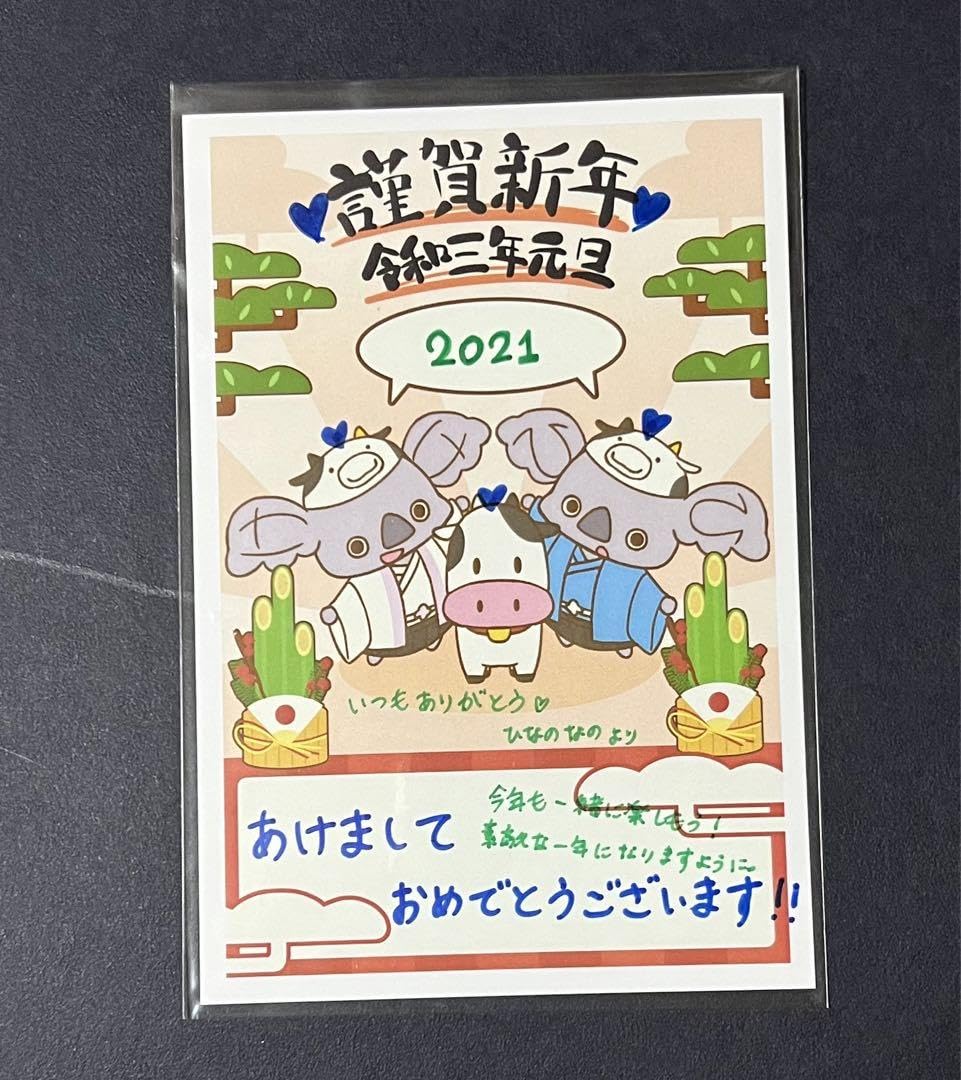 謹賀新年
令和三年元旦
2021
いつもありがとう♡
ひなのなのより
あけまして
今年も一緒に楽しもう!
素敵な一年になりますように。
おめでとうございます!!